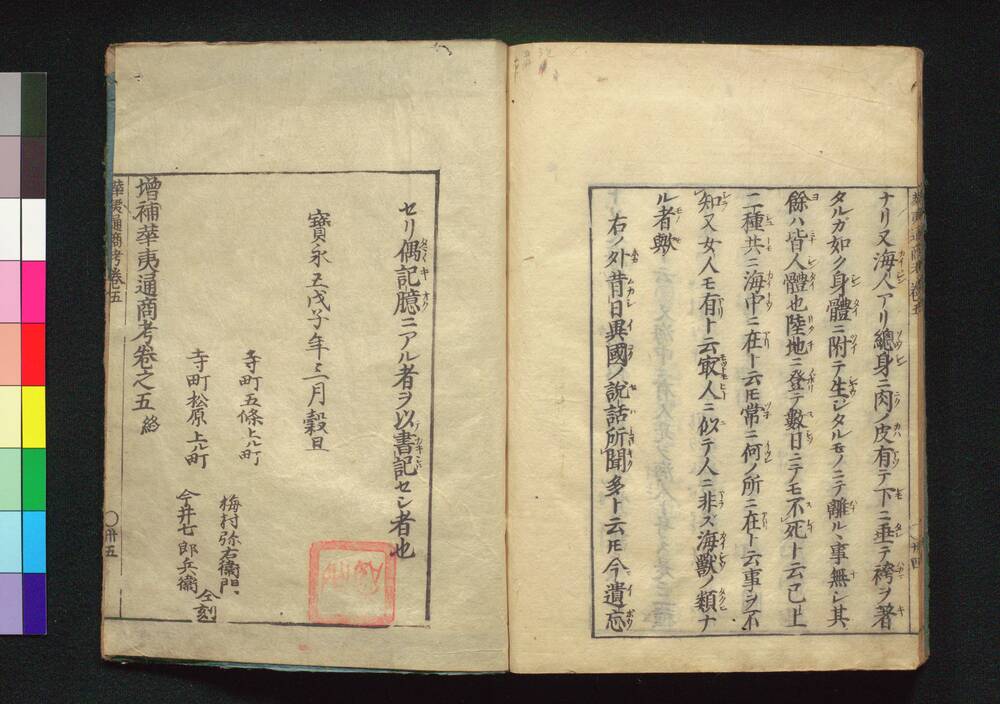 ナリ又海人アリ總身ニ肉ノ皮有テ下ニ垂テ袴ヲ著
タルカ如ク身體ニ附テ生シタルモノニテ離ルヽ事無シ其
餘ハ皆人體也陸地ニ登テ數日ニテモ不死ト云已上
二種共ニ海中ニ在ト云𪜈常ニ何ノ所ニ在ト云事ヲ不
知又女人モ有ト云寂人ニ似テ人ニ非ズ海獸ノ類ナ
ル者歟
右ノ外昔日異國ノ說話所聞多ト云𪜈今遺忘
セリ偶記臆ニアル者ヲ以書記セシ者也
寶永五戊子年三月穀旦
寺町五條上ル町
梅村弥右衞門
寺町松原上ル町
今井七郎兵衞
仝刻
增補華夷通商考卷之五終
華夷通商考卷五
〇卅五